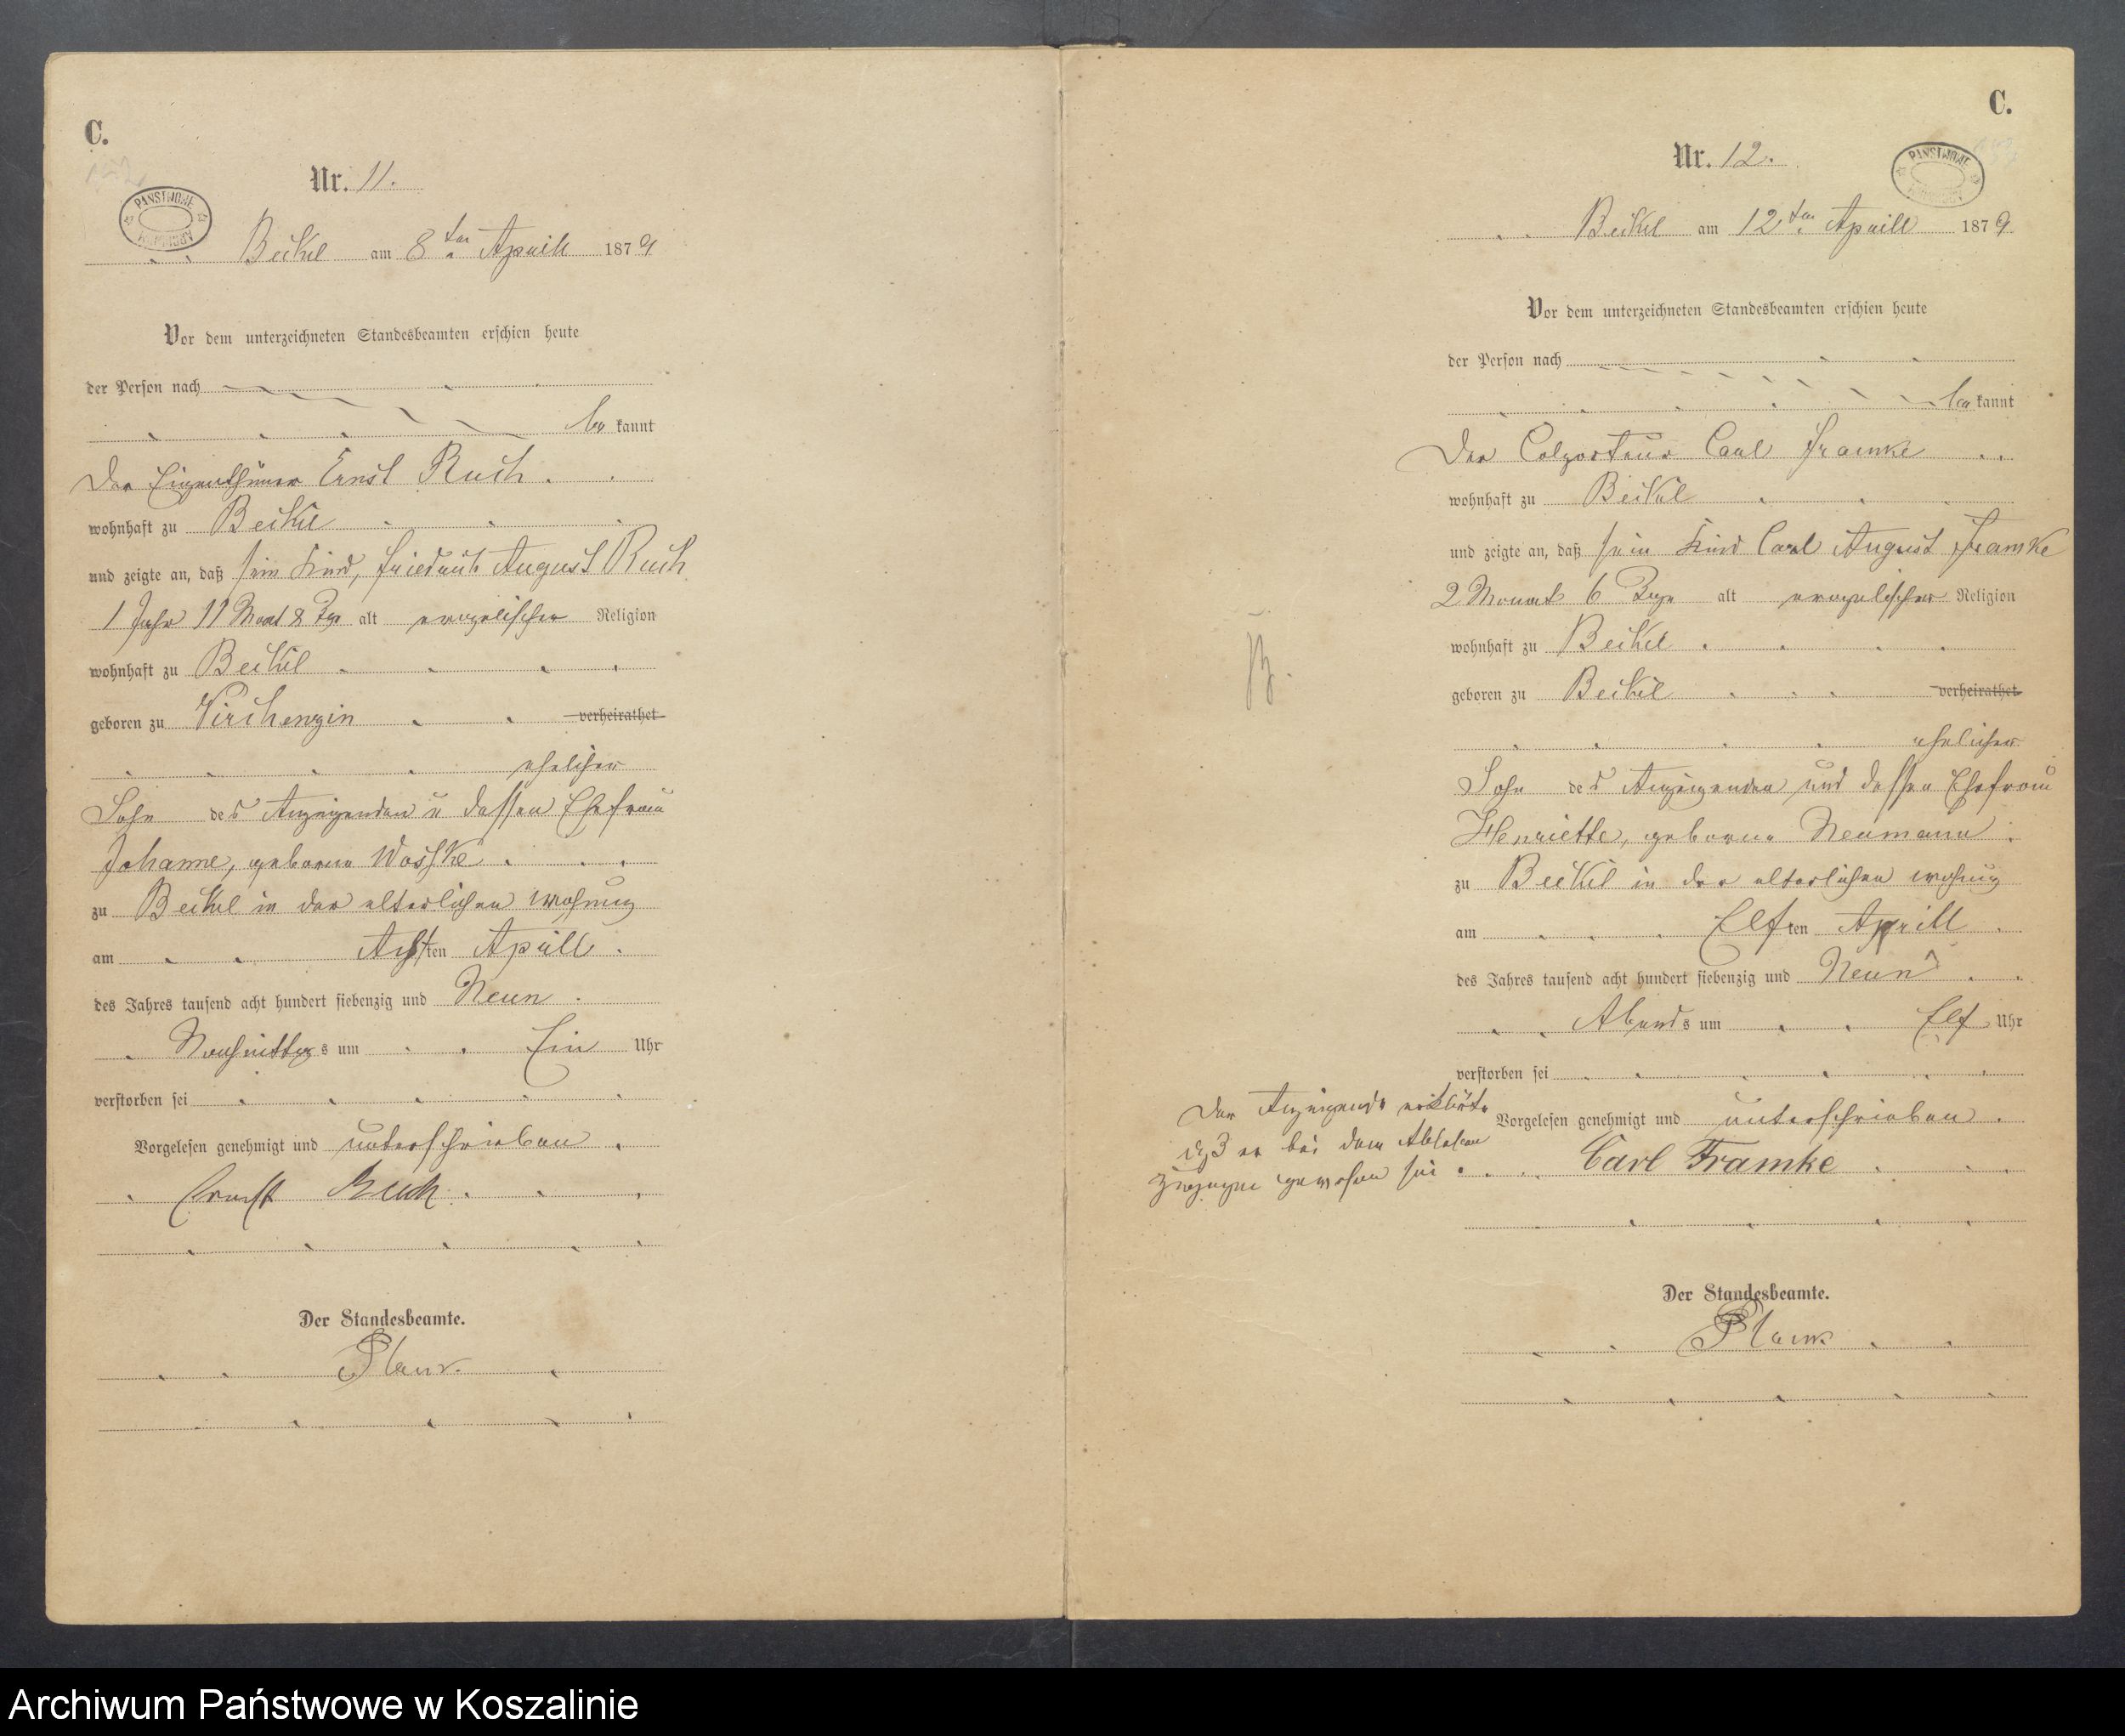 C.
Nr. 11.
PAŃSTWOWE
Beikel am 8ten Aprill 1879
Vor dem unterzeichneten Standesbeamten erschien heute
der Person nach
be kannt
Der Eigenthümer Ernst Ruch
wohnhaft zu Beikel
und zeigte an, daß sein Kind, Friedrich August Ruch
1 Jahr 11 Monat 8 Tge alt evangelischer Religion
wohnhaft zu Beikel
geboren zu Virchenzin verheirathet
ehelicher
Sohn des Anzeigenden u dessen Ehefrau
Johanne, geborne Woschke
zu Beikel in der elterlichen Wohnung
am Achten Aprill
des Jahres tausend acht hundert siebenzig und Neun
Nachmittags um Ein Uhr
verstorben sei
Vorgelesen genehmigt und unterschrieben
Ernst Ruch
Der Standesbeamte.
C.
Nr. 12.
PAŃSTWOWE
Beikel am 12ten Aprill 1879
Vor dem unterzeichneten Standesbeamten erschien heute
der Person nach
be kannt
Der Colporteur Carl Framke
wohnhaft zu Beikel
und zeigte an, daß sein Kind Carl August Framke
2 Monat 6 Tage alt evangelischer Religion
wohnhaft zu Beikel
geboren zu Beikel verheirathet
ehelicher
Sohn des Anzeigenden und dessen Ehefrau
Henriette, geborne Neumann
zu Beikel in der elterlichen Wohnung
am Elften Aprill
des Jahres tausend acht hundert siebenzig und Neun
Abends um Elf Uhr
verstorben sei
Der Anzeigende erklärte
daß er bei dem Ableben
zugegen gewesen sei
Vorgelesen genehmigt und unterschrieben
Carl Framke
Der Standesbeamte.
Archiwum Państwowe w Koszalinie